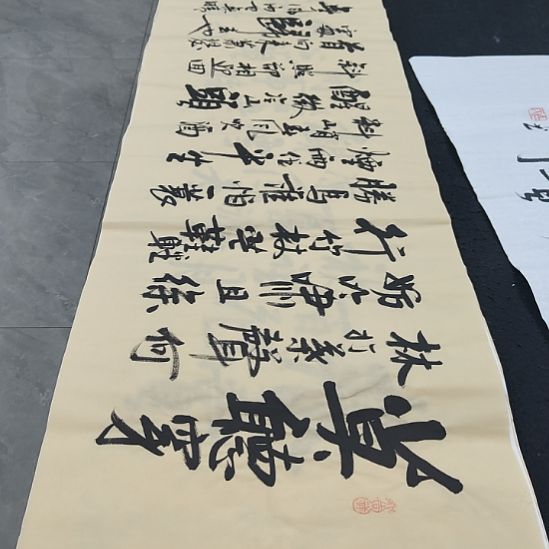 莫聽穿
林打葉聲何
妨吟嘯且徐
行竹杖芒鞋輕
勝馬誰怕一蓑
煙雨任平生
料峭春風吹酒
醒微冷山頭
斜照卻相迎回
首向來蕭瑟
處歸去也